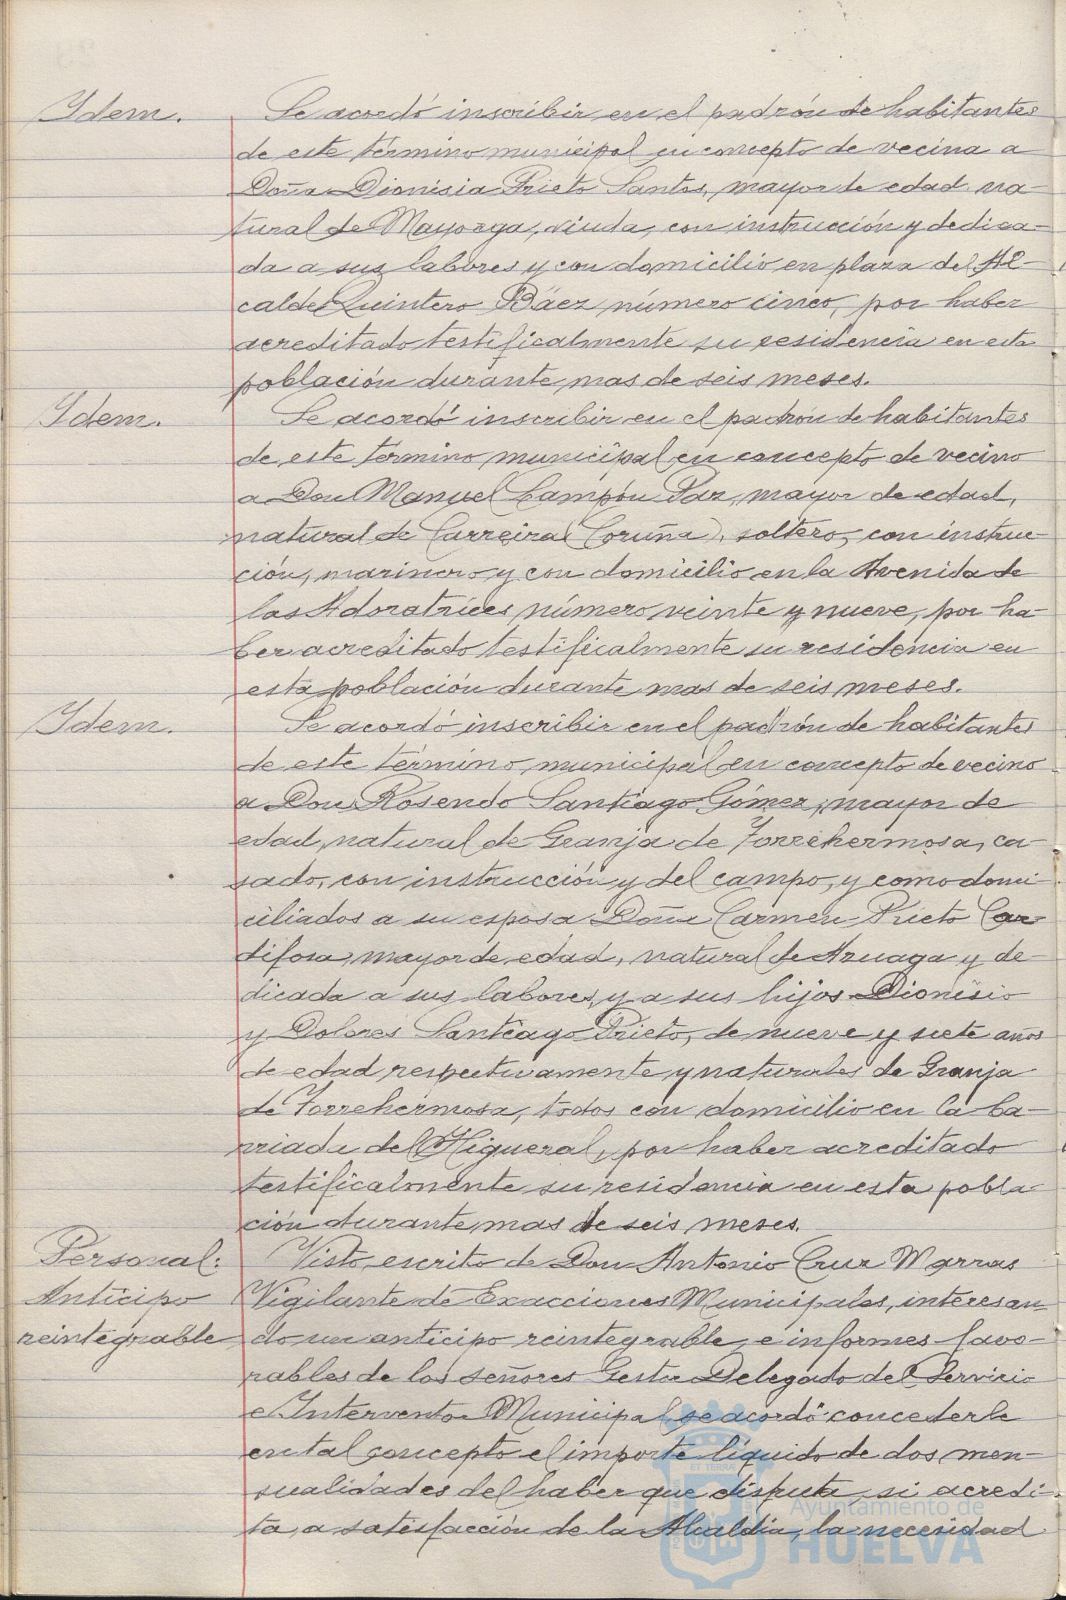 Idem. Se acordó inscribir en el padrón de habitantes
de este término municipal en concepto de vecina a
Doña Dionisia Prieto Santos, mayor de edad na-
tural de Mayorga, viuda, con instrucción y dedica-
da a sus labores y con domicilio en plaza del Al-
calde Quintero Báez número cinco, por haber
acreditado testificalmente su residencia en esta
población durante mas de seis meses.
Idem. Se acordó inscribir en el padrón de habitantes
de este término municipal en concepto de vecino
a Don Manuel Campón Paz, mayor de edad,
natural de Carreira (Coruña), soltero, con instruc-
ción, marinero y con domicilio en la Avenida de
las Adoratrices número veinte y nueve, por ha-
ber acreditado testificalmente su residencia en
esta población durante mas de seis meses.
Idem. Se acordó inscribir en el padrón de habitantes
de este término municipal en concepto de vecino
a Don Rosendo Santiago Gómez, mayor de
edad, natural de Granja de Torrehermosa, ca-
sado, con instrucción y del campo, y como domi-
ciliados a su esposa Doña Carmen Prieto
mayor de edad, natural de Azuaga y de-
dicada a sus labores, y a sus hijos Dionisio
y Dolores Santiago Prieto, de nueve y siete años
de edad respectivamente y naturales de Granja
de Torrehermosa, todos con domicilio en la ba-
rriada del Higueral, por haber acreditado
testificalmente su residencia en esta pobla-
ción durante mas de seis meses.
Personal: Visto escrito de Don Antonio Cruz
Anticipo Vigilante de Exacciones Municipales, interesan-
reintegrable do un anticipo reintegrable, e informes favo-
rables de los señores Gestor Delegado del Servicio
e Interventor Municipal se acordó concederle
en tal concepto el importe líquido de dos men-
sualidades del haber que disfruta, si acredi-
ta, a satisfacción de la Alcaldía, la necesidad
Ayuntamiento de
HUELVA